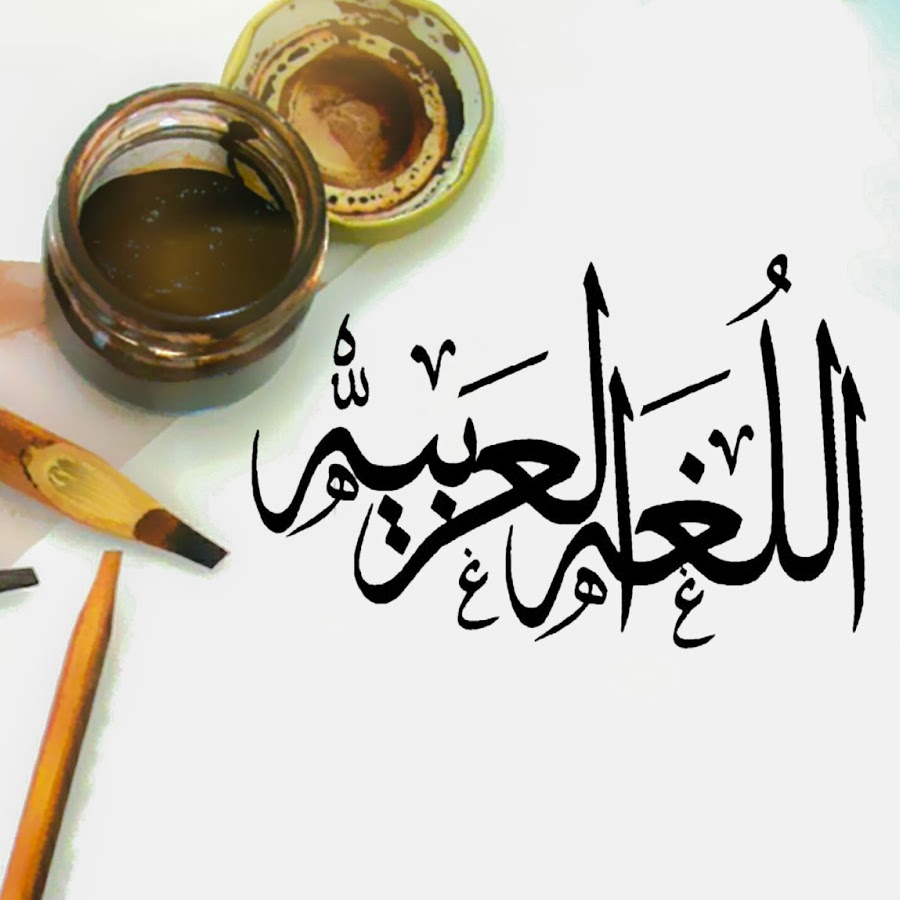 اللُّغَه العَرَبيه